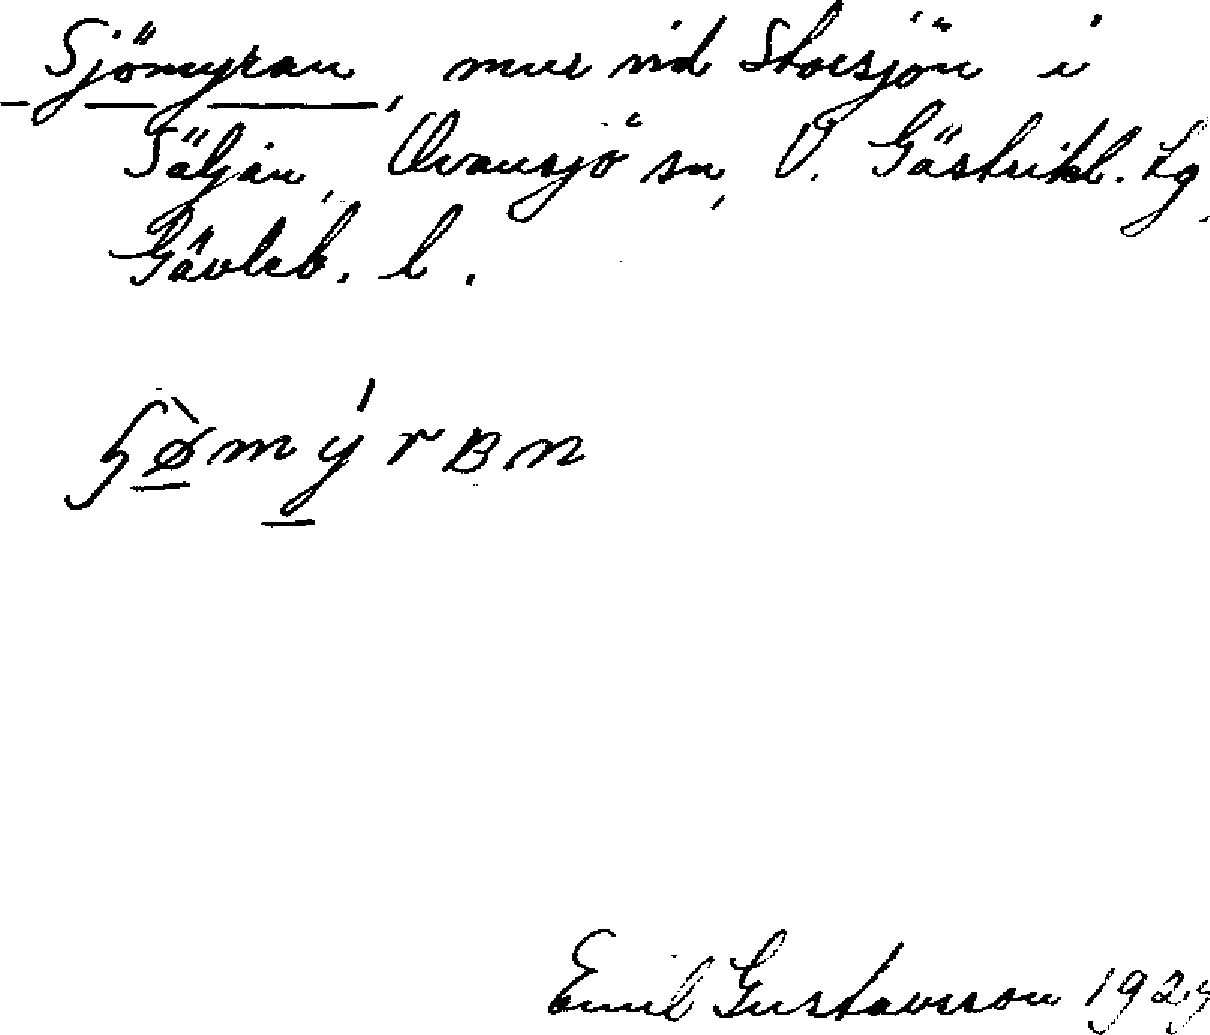 Sjömyran, mur vid Storsjön i
Säljan, Ovansjö sn, V. Gästrikl. tg,
Gävleb. l.
ʃø̀mýrʙn
Emil Gustavsson 1925